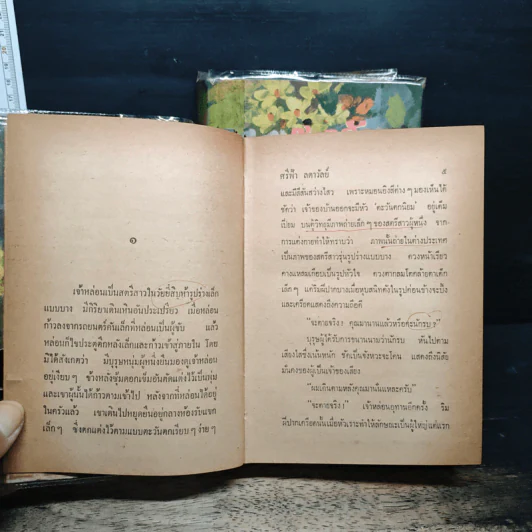 ๑
เจ้าหล่อนเป็นสตรีสาวในวัยยี่สิบห้ารูปร่างเล็ก
แบบบาง มีกิริยาเด่นเหมือน เมื่อหล่อน
ก้าวลงจากรถยนตร์คันเล็กที่หล่อนเป็นผู้ขับ แล้ว
หล่อนก็ไขประตูตึกหลังเล็กและก้าวเข้าสู่ภายใน โดย
มิได้สังเกตว่า มีบุรุษหนุ่มผู้หนึ่งยืนมองดูเจ้าหล่อน
อยู่เงียบ ๆ ข้างหลังซุ้มดอกเข็มอันตัดแต่งไว้เป็นพุ่ม
และเขาผู้นั้นได้ก้าวตามเข้าไป หลังจากที่หล่อนได้อยู่
ในครัวแล้ว เขาเดินไปหยุดยืนอยู่กลางห้องรับแขก
เล็ก ๆ ซึ่งตกแต่งไว้ตามแบบตะวันตกเรียบ ๆ ง่าย ๆ
ศรีฟ้า ลดาวัลย์ ๕
และมีสีสันสว่างไสว เพราะหมอนอิงสีต่าง ๆ มองเห็นได้
ชัดว่า เจ้าของบ้านออกจะมีหัว ‘ตะวันตกนิยม’ อยู่เต็ม
เปี่ยม บนตู้วิทยุมีภาพถ่ายเล็ก ๆ ของสตรีสาวผู้หนึ่ง จาก
การแต่งกายทำให้ทราบว่า ภาพนั้นถ่ายในต่างประเทศ
เป็นภาพของสตรีสาวรุ่นรูปร่างแบบบาง ดวงหน้าเรียว
คางแหลมเกือบเป็นรูปหัวใจ ดวงตากลมโตคล้ายตาเด็ก
เล็ก ๆ แต่ริมฝีปากบางเมื่อหุบสนิทดังในรูปค่อนข้างจะบึ้ง
และเครียดแสดงถึงความถือดี
“จะตายจริง! คุณมานานแล้วหรือคะนักรบ”
บุรุษผู้ได้รับการขนานนามว่านักรบ หันไปตาม
เสียงใสซึ่งเน้นหนัก ชัดเป็นจังหวะจะโคน แสดงถึงนิสัย
มั่นคงของผู้เป็นเจ้าของเสียง
“ผมเดินตามหลังคุณมานั่นแหละครับ”
“จะตายจริง!” เจ้าหล่อนอุทานอีกครั้ง ริม
ฝีปากเครียดนั้นเมื่อหัวเราะทำให้ลักษณะเป็นผู้ใหญ่แต่แรก